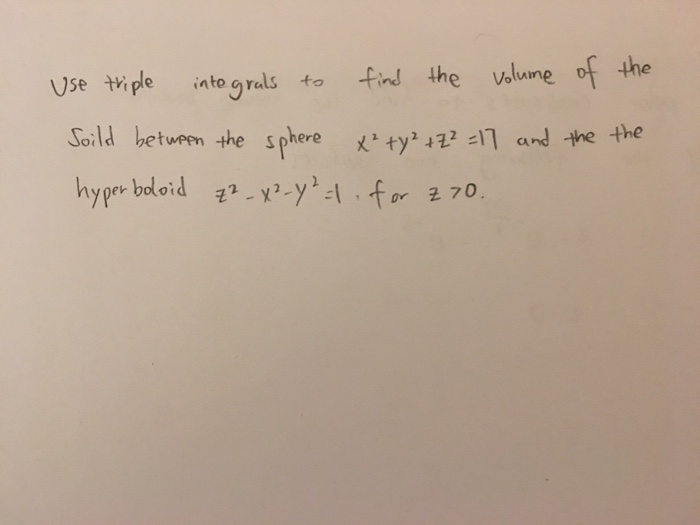 Use triple integrals to find the volume of the
Soild between the sphere x² + y² + z² = 17 and the the
hyperboloid z² - x² - y² = 1 . for z > 0.